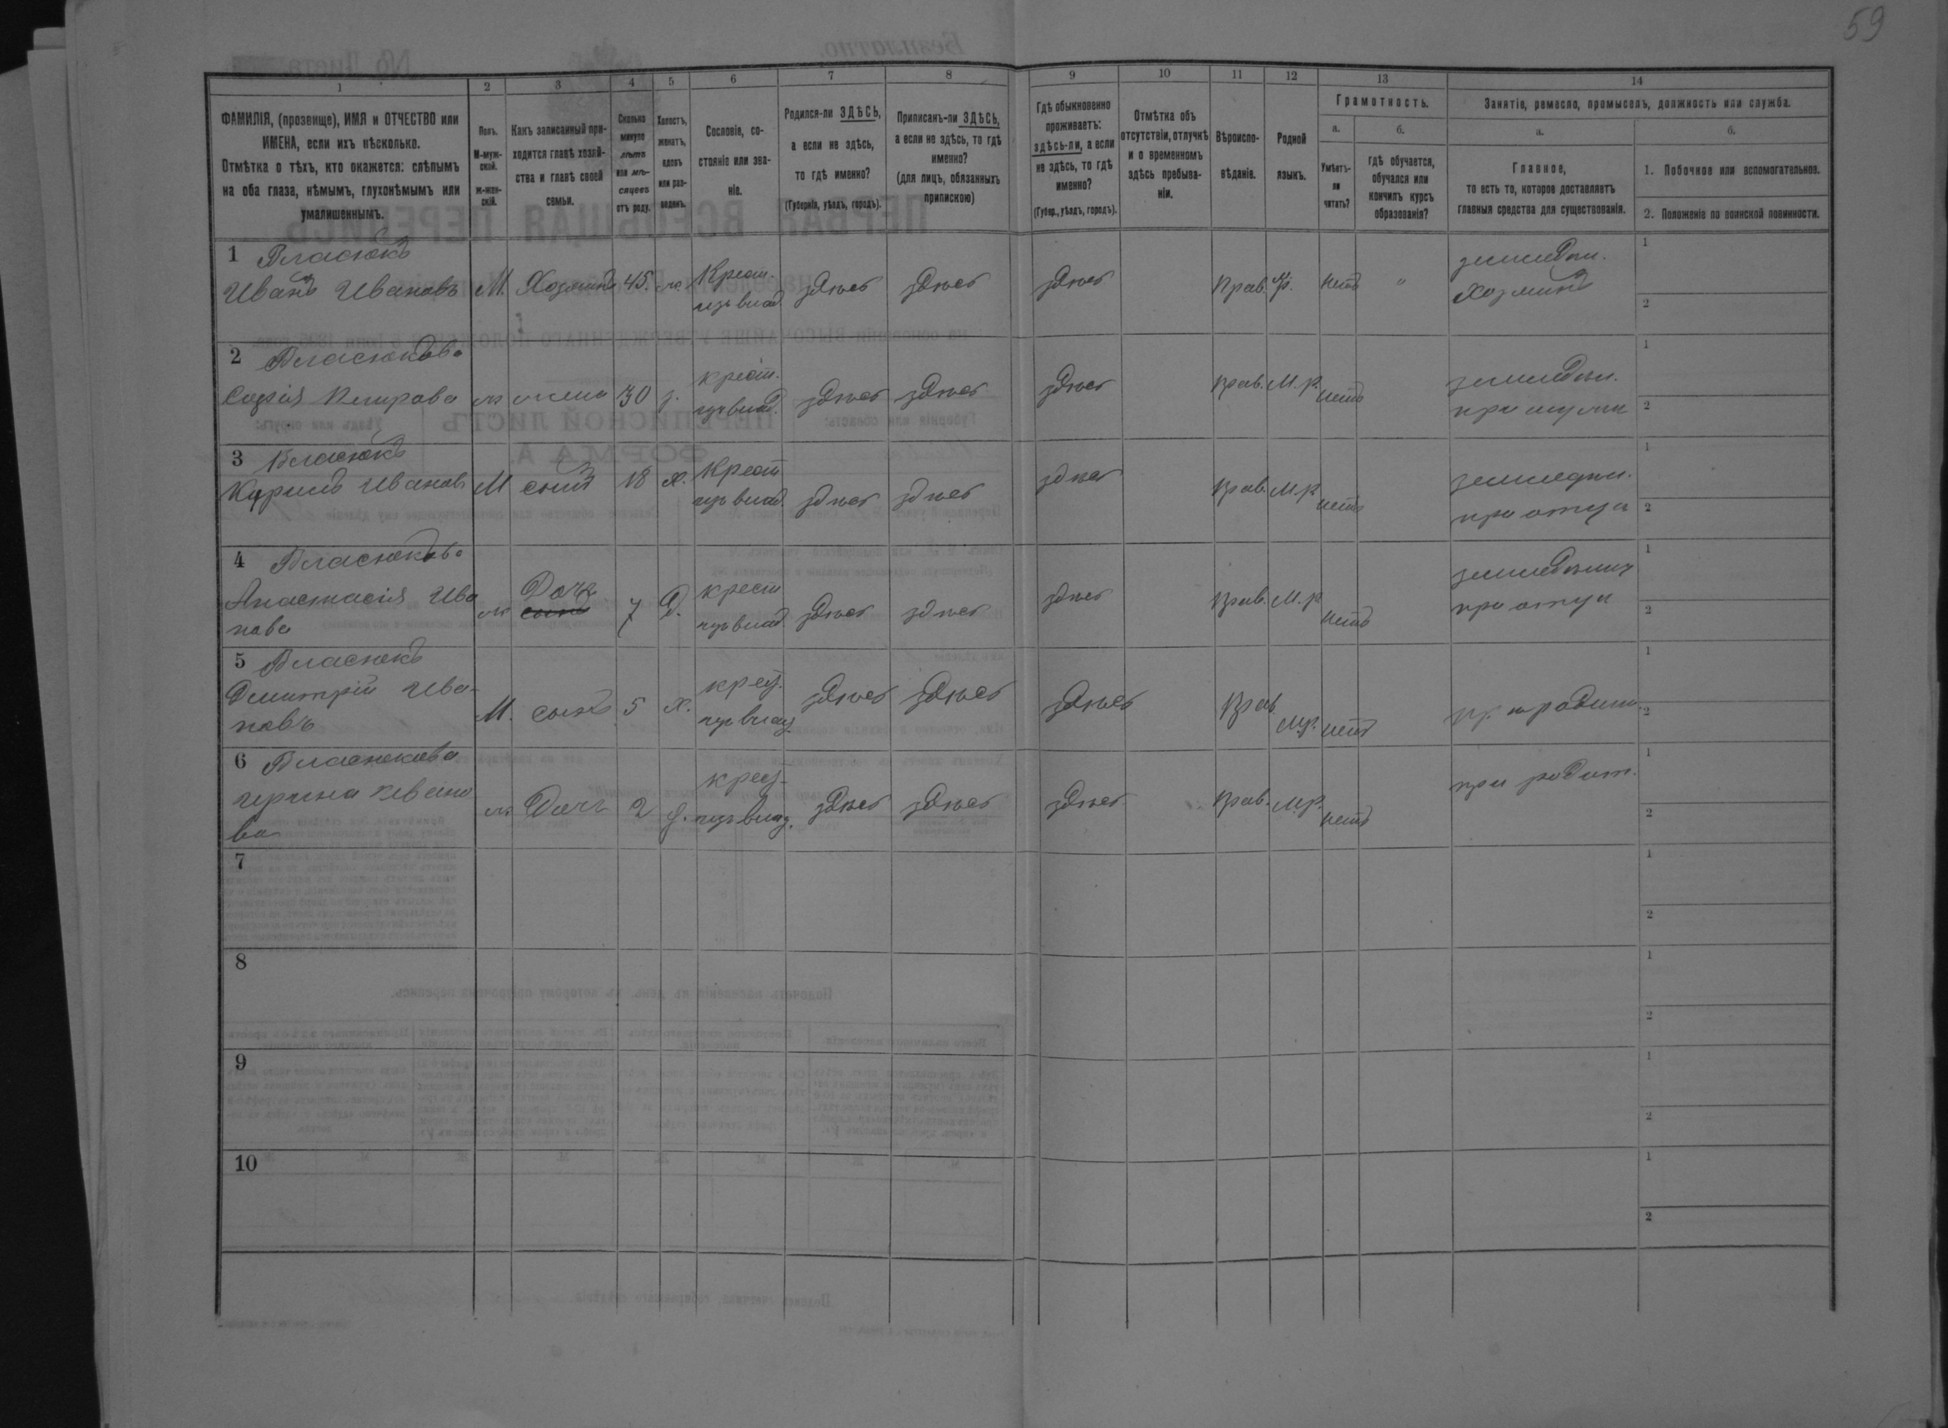 59
1
2
3
4
5
6
7
8
9
10
11
12
13
14
ФАМИЛІЯ, (прозвище), ИМЯ и ОТЧЕСТВО или
ИМЕНА, если ихъ нѣсколько.
Отмѣтка о тѣхъ, кто окажется: слѣпымъ
на оба глаза, нѣмымъ, глухонѣмымъ или
умалишеннымъ.
Полъ.
М-муж-
ской.
ж-жен-
скій.
Какъ записанный при-
ходится главѣ хозяй-
ства и главѣ своей
семьи.
Сколько
минуло
лѣтъ
или мѣ-
сяцевъ
отъ роду.
Холостъ,
женатъ,
вдовъ
или раз-
веденъ.
Сословіе, со-
стояніе или зва-
ніе.
Родился-ли ЗДѢСЬ,
а если не здѣсь,
то гдѣ именно?
(Губернія, уѣздъ, городъ).
Приписанъ-ли ЗДѢСЬ,
а если не здѣсь, то гдѣ
именно?
(для лицъ, обязанныхъ
припискою)
Гдѣ обыкновенно
проживаетъ:
здѣсь-ли, а если
не здѣсь, то гдѣ
именно?
(Губер., уѣздъ, городъ).
Отмѣтка объ
отсутствіи, отлучкѣ
и о временномъ
здѣсь пребыва-
ніи.
Вѣроиспо-
вѣданіе.
Родной
языкъ.
Грамотность.
а.
б.
Умѣетъ-
ли
читать?
гдѣ обучается,
обучался или
кончилъ курсъ
образованія?
Занятіе, ремесло, промыселъ, должность или служба.
а.
б.
Главное,
то есть то, которое доставляетъ
главныя средства для существованія.
1. Побочное или вспомогательное.
2. Положеніе по воинской повинности.
1 Власюкъ
Иванъ Ивановъ М. Хозяинъ 45. Крест. здѣсь здѣсь здѣсь Прав. нетъ " земледѣл.
Хозяинъ
1
2
2 Власюкова
Софія жена 30 крест. здѣсь здѣсь здѣсь Прав. М.р. нетъ земледѣл.
при мужи
1
2
3 Власюкъ
Кирилъ Иванов М сынъ 18 х. Крест здѣсь здѣсь здѣсь Прав. М.р. нетъ земледел.
при отци
1
2
4 Власюкова
Анастасія Ива
нова Дочь 7 Д. крест здѣсь здѣсь здѣсь Прав. М.р. нетъ
при отци
1
2
5 Власюкъ
Дмитрій Ива-
новъ М. сынъ 5 х. здѣсь здѣсь здѣсь Прав М.р. нетъ
1
2
6 Власюкова
Ирина Ивано
ва Дочь 2 здѣсь здѣсь здѣсь Прав. М.р. нетъ при родит.
1
2
7
1
2
8
1
2
9
1
2
10
1
2